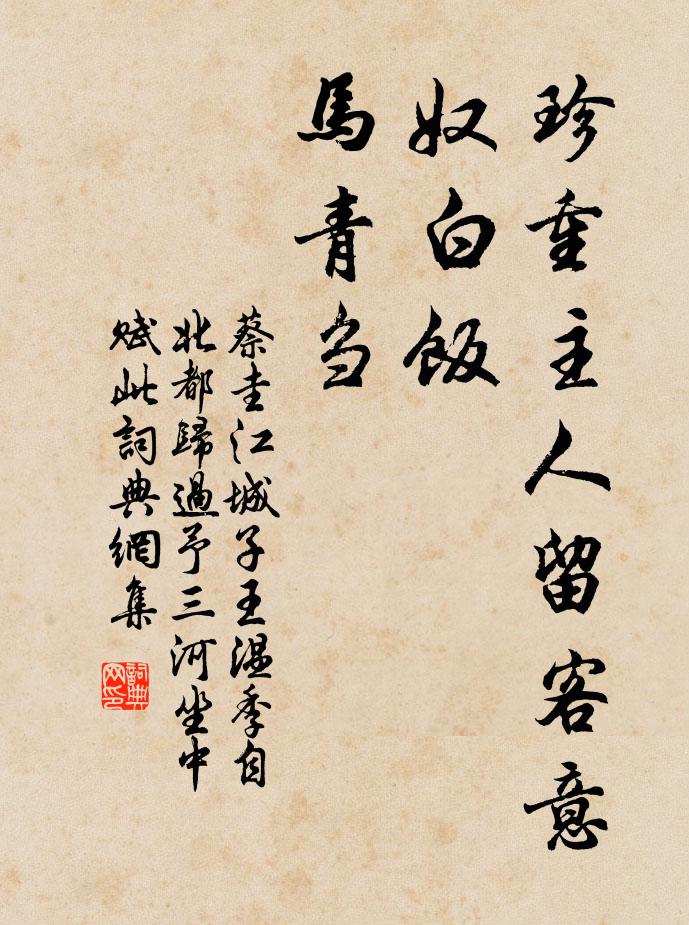 珍重主人留客意
奴白飯
馬青当
蔡圭江城子王温季自
北都歸過予三河坐中
賦此詞典網集
詞典
网印